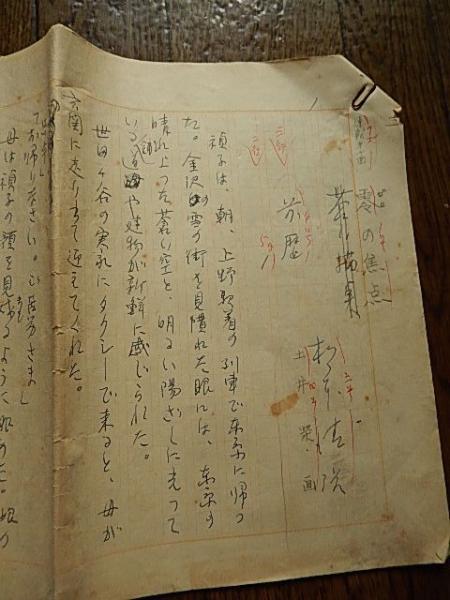 零の焦点
蒼い描点
松本清張
土井栄・画
前歴
禎子は、朝、上野駅着の列車で東京に帰っ
た。金沢の雪の街を見慣れた眼には、東京の
晴れ上った蒼い空と、明るい陽ざしに光って
いる道路や建物が新鮮に感じられた。
世田ヶ谷の実家にタクシーで来ると、母が
玄関に走り出て迎えてくれた。
お帰りなさい。ご苦労さま」
母は禎子の顔を見るように眺めた。娘の